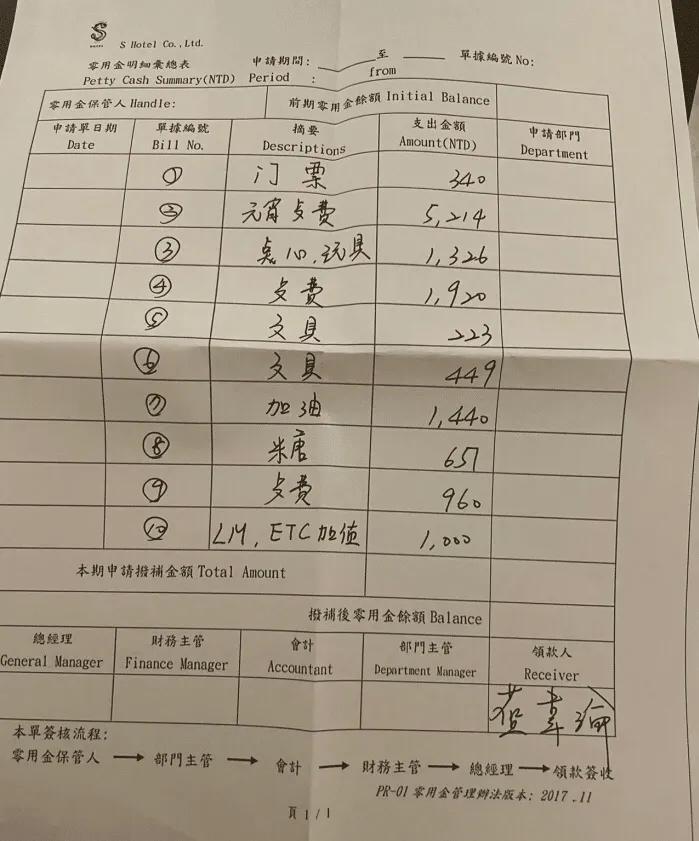 S
S Hotel Co.,Ltd.
零用金明細彙總表 申請期間: 至 單據編號 No:
Petty Cash Summary(NTD) Period : from
零用金保管人 Handle: 前期零用金餘額 Initial Balance
申請單日期 單據編號 摘要 支出金額 申請部門
Date Bill No. Descriptions Amount(NTD) Department
① 门票 340
② 元宵 费 5,214
③ 点心,玩具 1,326
④ 费 1,920
⑤ 文具 223
⑥ 文具 449
⑦ 加油 1,440
⑧ 657
⑨ 费 960
⑩ LM, ETC 加值 1,000
本期申請撥補金額 Total Amount
撥補後零用金餘額 Balance
總經理 財務主管 會計 部門主管 領款人
General Manager Finance Manager Accountant Department Manager Receiver
本單簽核流程:
零用金保管人 → 部門主管 → 會計 → 財務主管 → 總經理 → 領款簽收
PR-01 零用金管理辦法版本: 2017.11
頁 1 / 1